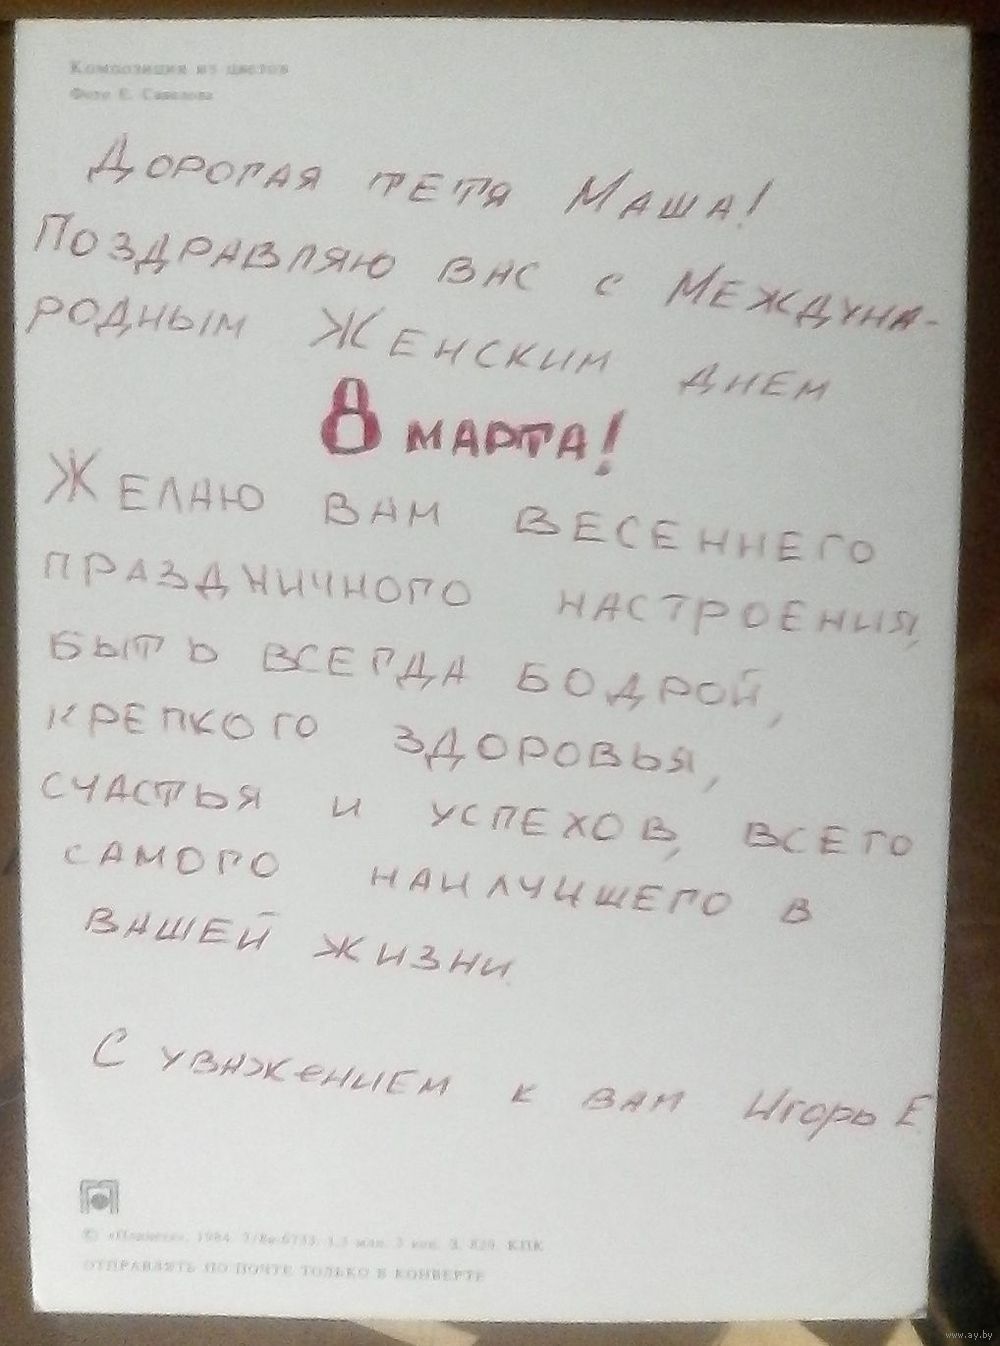 Композиция из цветов
Фото Е. Савалова
Дорогая тетя Маша!
Поздравляю вас с Междуна-
родным Женским днем
8 марта!
Желаю вам весеннего
праздничного настроения,
быть всегда бодрой,
крепкого здоровья,
счастья и успехов, всего
самого наилучшего в
вашей жизни.
С уважением к вам Игорь Е.
© «Планета», 1984. 3 коп. КПК
ОТПРАВЛЯТЬ ПО ПОЧТЕ ТОЛЬКО В КОНВЕРТЕ
www.ay.by